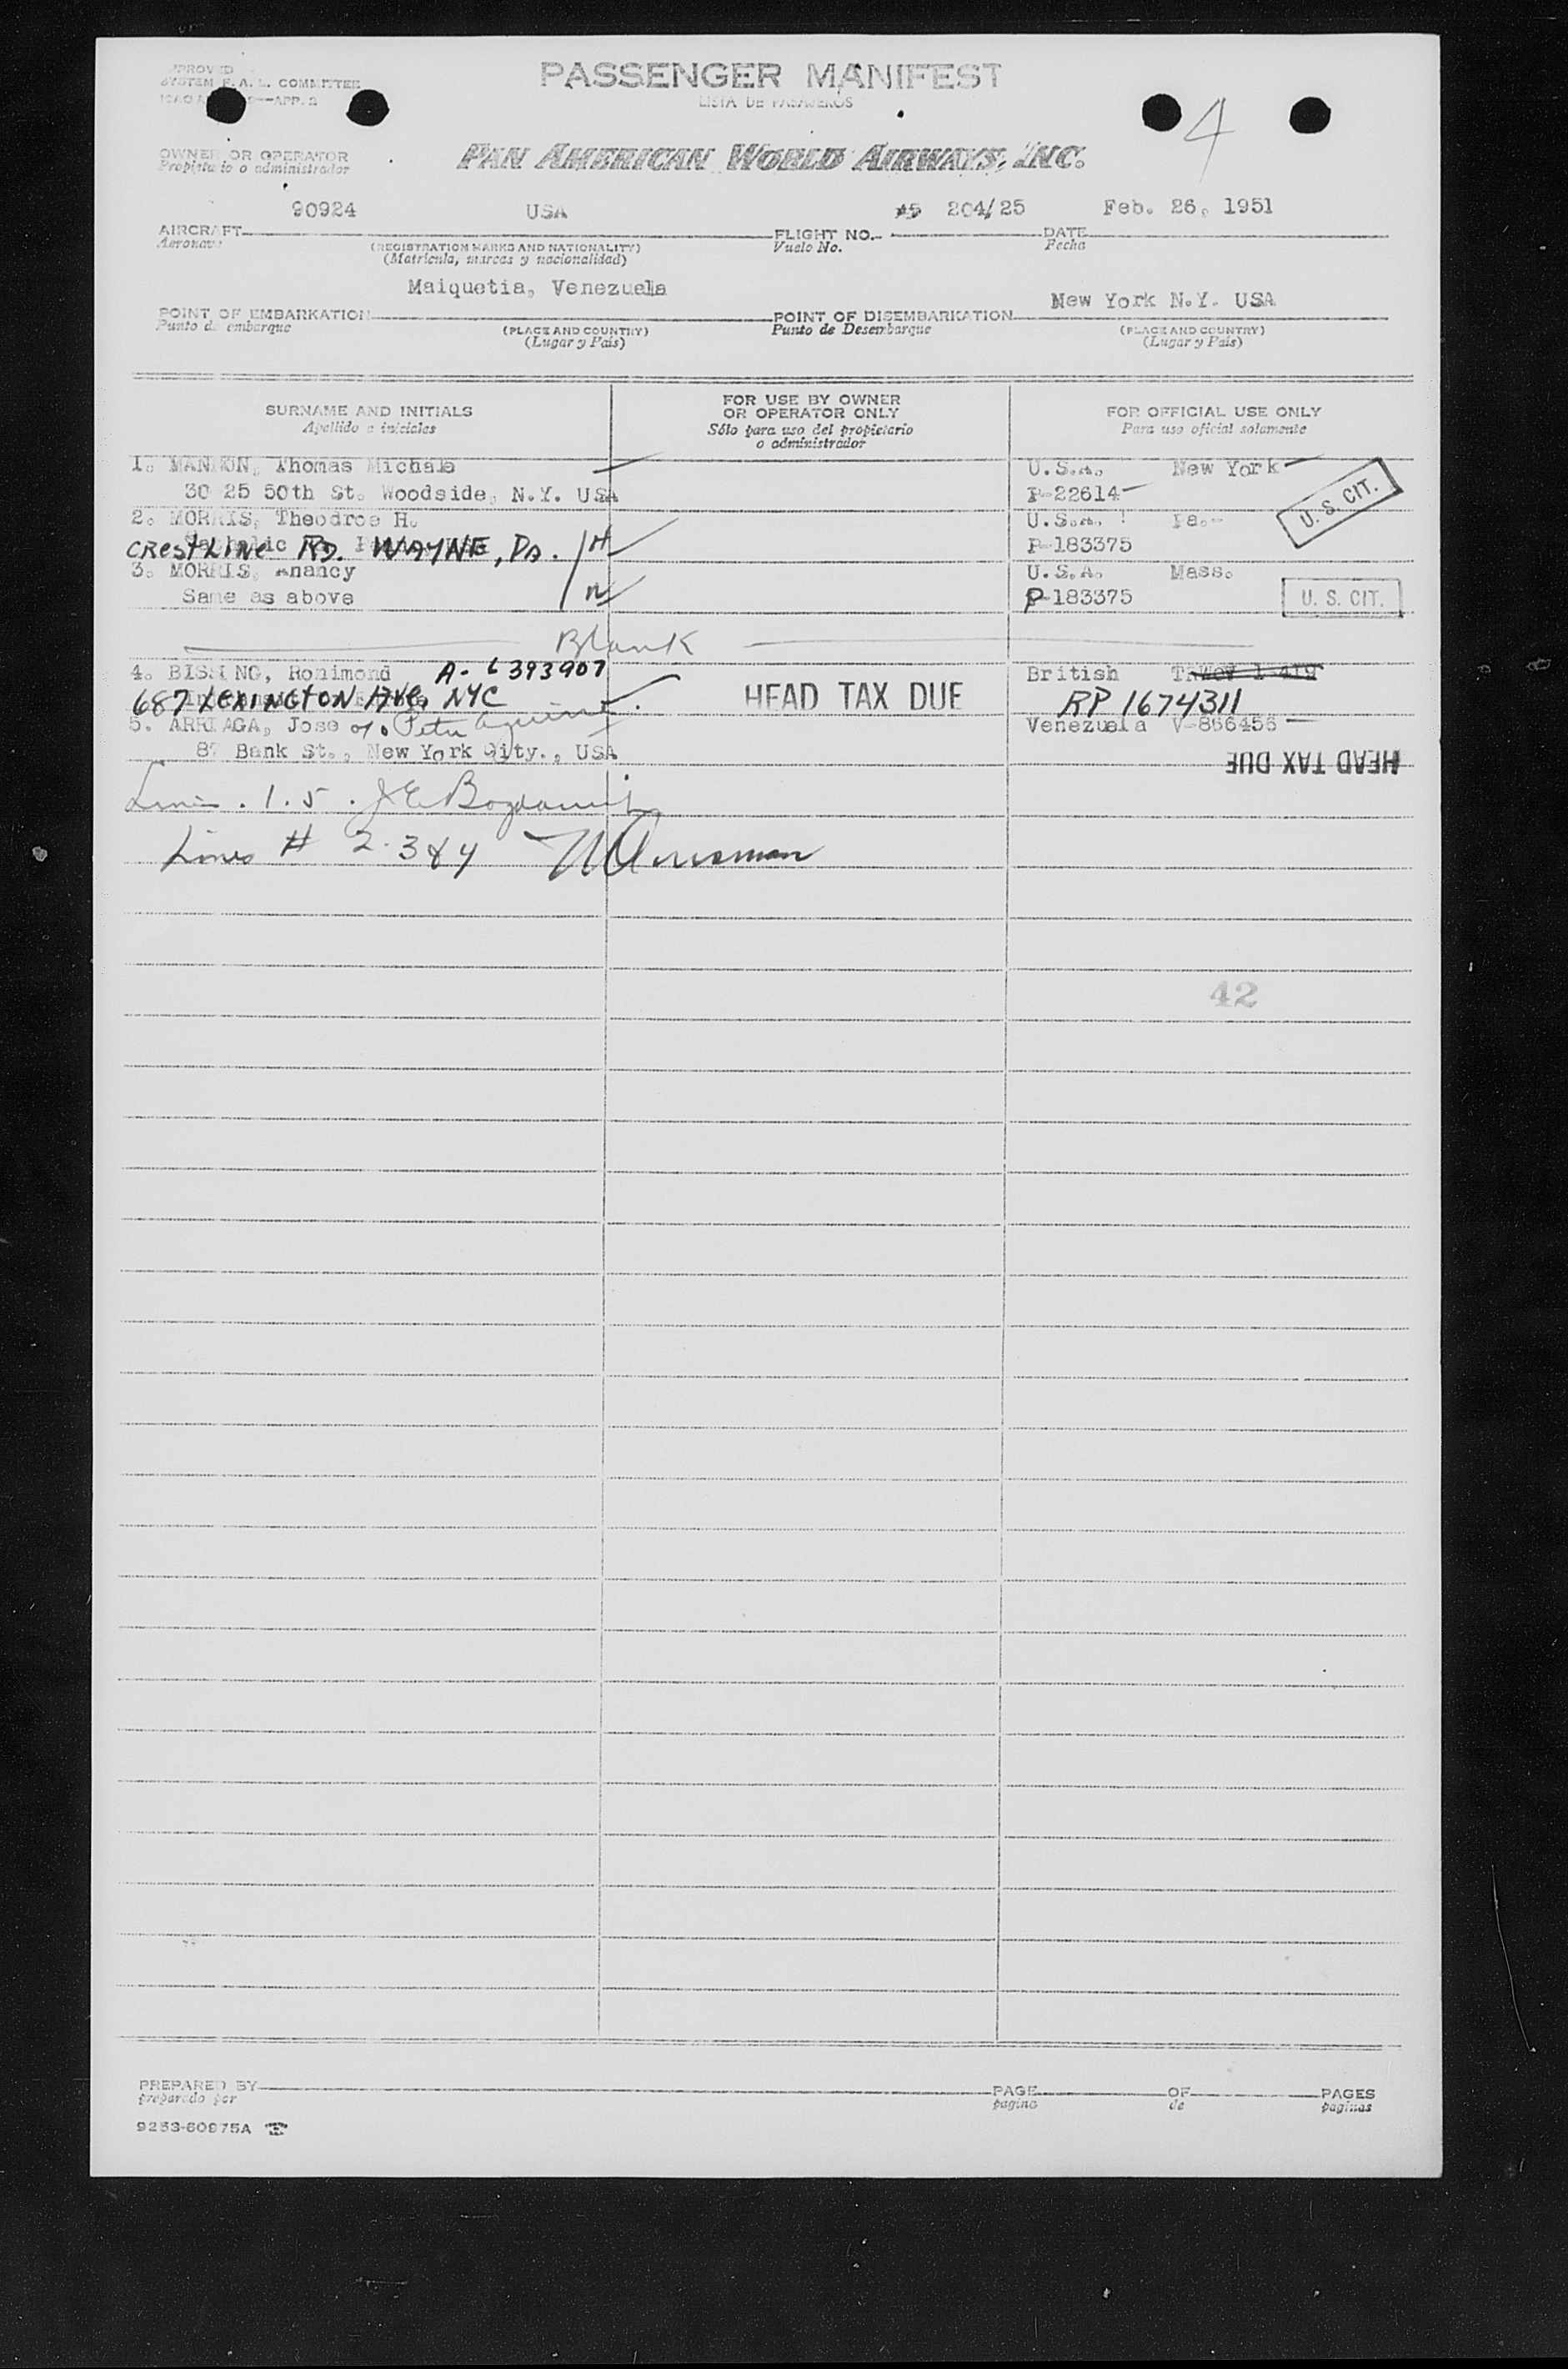 PASSENGER MANIFEST
SYSTEM F. A. L. COMMITTEE
LISTA DE PASAJEROS
4
OWNER OR OPERATOR
Propietario o administrador
PAN AMERICAN WORLD AIRWAYS, INC.
90924 USA 204/25 Feb. 26, 1951
AIRCRAFT FLIGHT NO. DATE
Aeronave Vuelo No. Fecha
(REGISTRATION MARKS AND NATIONALITY)
(Matrícula, marcas y nacionalidad)
Maiquetia, Venezuela New York N.Y. USA
POINT OF EMBARKATION POINT OF DISEMBARKATION
Punto de embarque Punto de Desembarque
(PLACE AND COUNTRY) (PLACE AND COUNTRY)
(Lugar y País) (Lugar y País)
SURNAME AND INITIALS FOR USE BY OWNER OR OPERATOR ONLY FOR OFFICIAL USE ONLY
Apellido e iniciales Sólo para uso del propietario o administrador Para uso oficial solamente
1. Thomas Michale U.S.A. New York
30 25 50th St. Woodside, N.Y. USA P-22614 U. S. CIT.
2. MORRIS, Theodroe H. U.S.A. Pa.
CRestLine RD. WAYNE, PA. P-183375
3. MORRIS, Anancy U.S.A. Mass.
Same as above P-183375 U. S. CIT.
Blank
4. Ronimond A- 6393907 British
687 LEXINGTON AVE, NYC HEAD TAX DUE RP 1674311
5. ARRIAGA, Jose Venezuela V-856456
Bank St., New York City., USA HEAD TAX DUE
1.5.
Lines # 2.3&4
42
PREPARED BY PAGE OF PAGES
preparado por pagina de paginas
9253-60975A